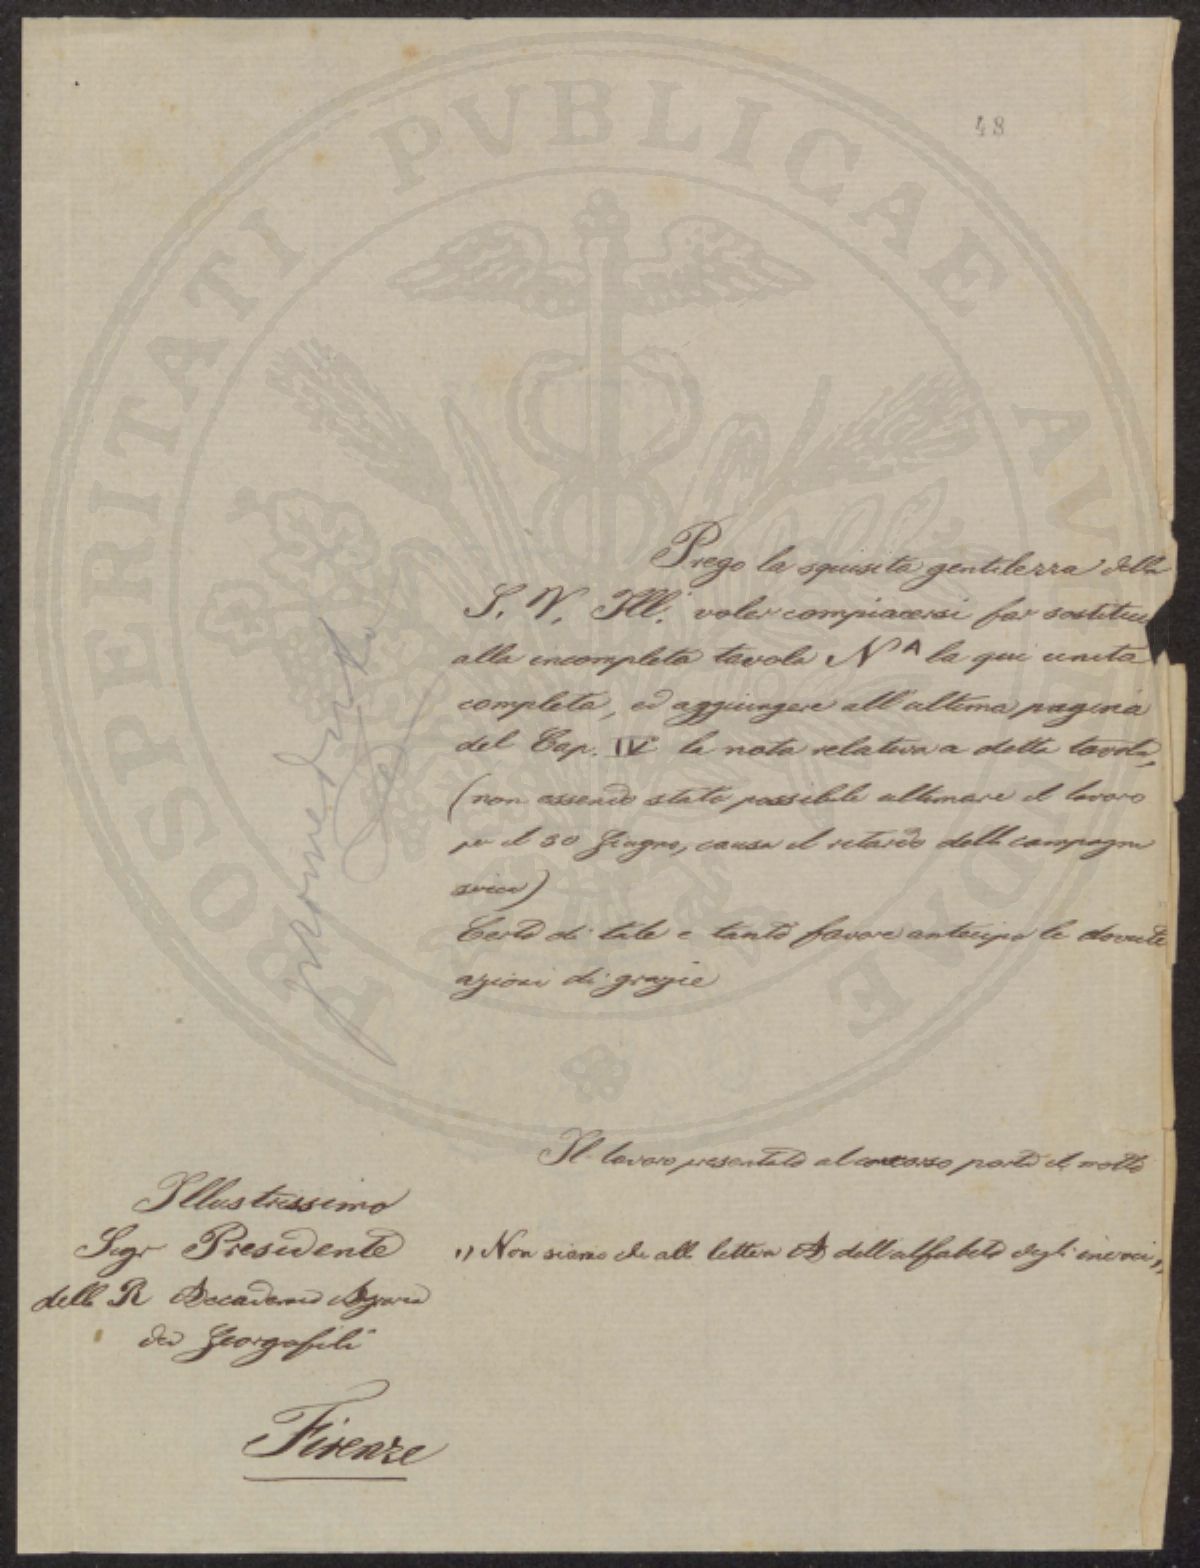 PROSPERITATI PVBLICAE AVGENDAE
48
Prego la squisita gentilezza della
S. V. Ill. voler compiacersi far sostitui
alla incompleta tavola N A la qui unita
completa, ed aggiungere all'ultima pagina
del Cap. IV la nota relativa a detta tavola,
(non essendo stato possibile ultimare il lavoro
pr il 30 Giugno, causa il ritardo della campagna
)
Certo di tale e tanto favore anticipo le dovute
azioni di grazie
Il lavoro presentato al concorso porta il motto
„ Non siamo che alla lettera A dell'alfabeto degli „
Illustrissimo
Sigr Presidente
della R Accademia
dei Georgofili
Firenze